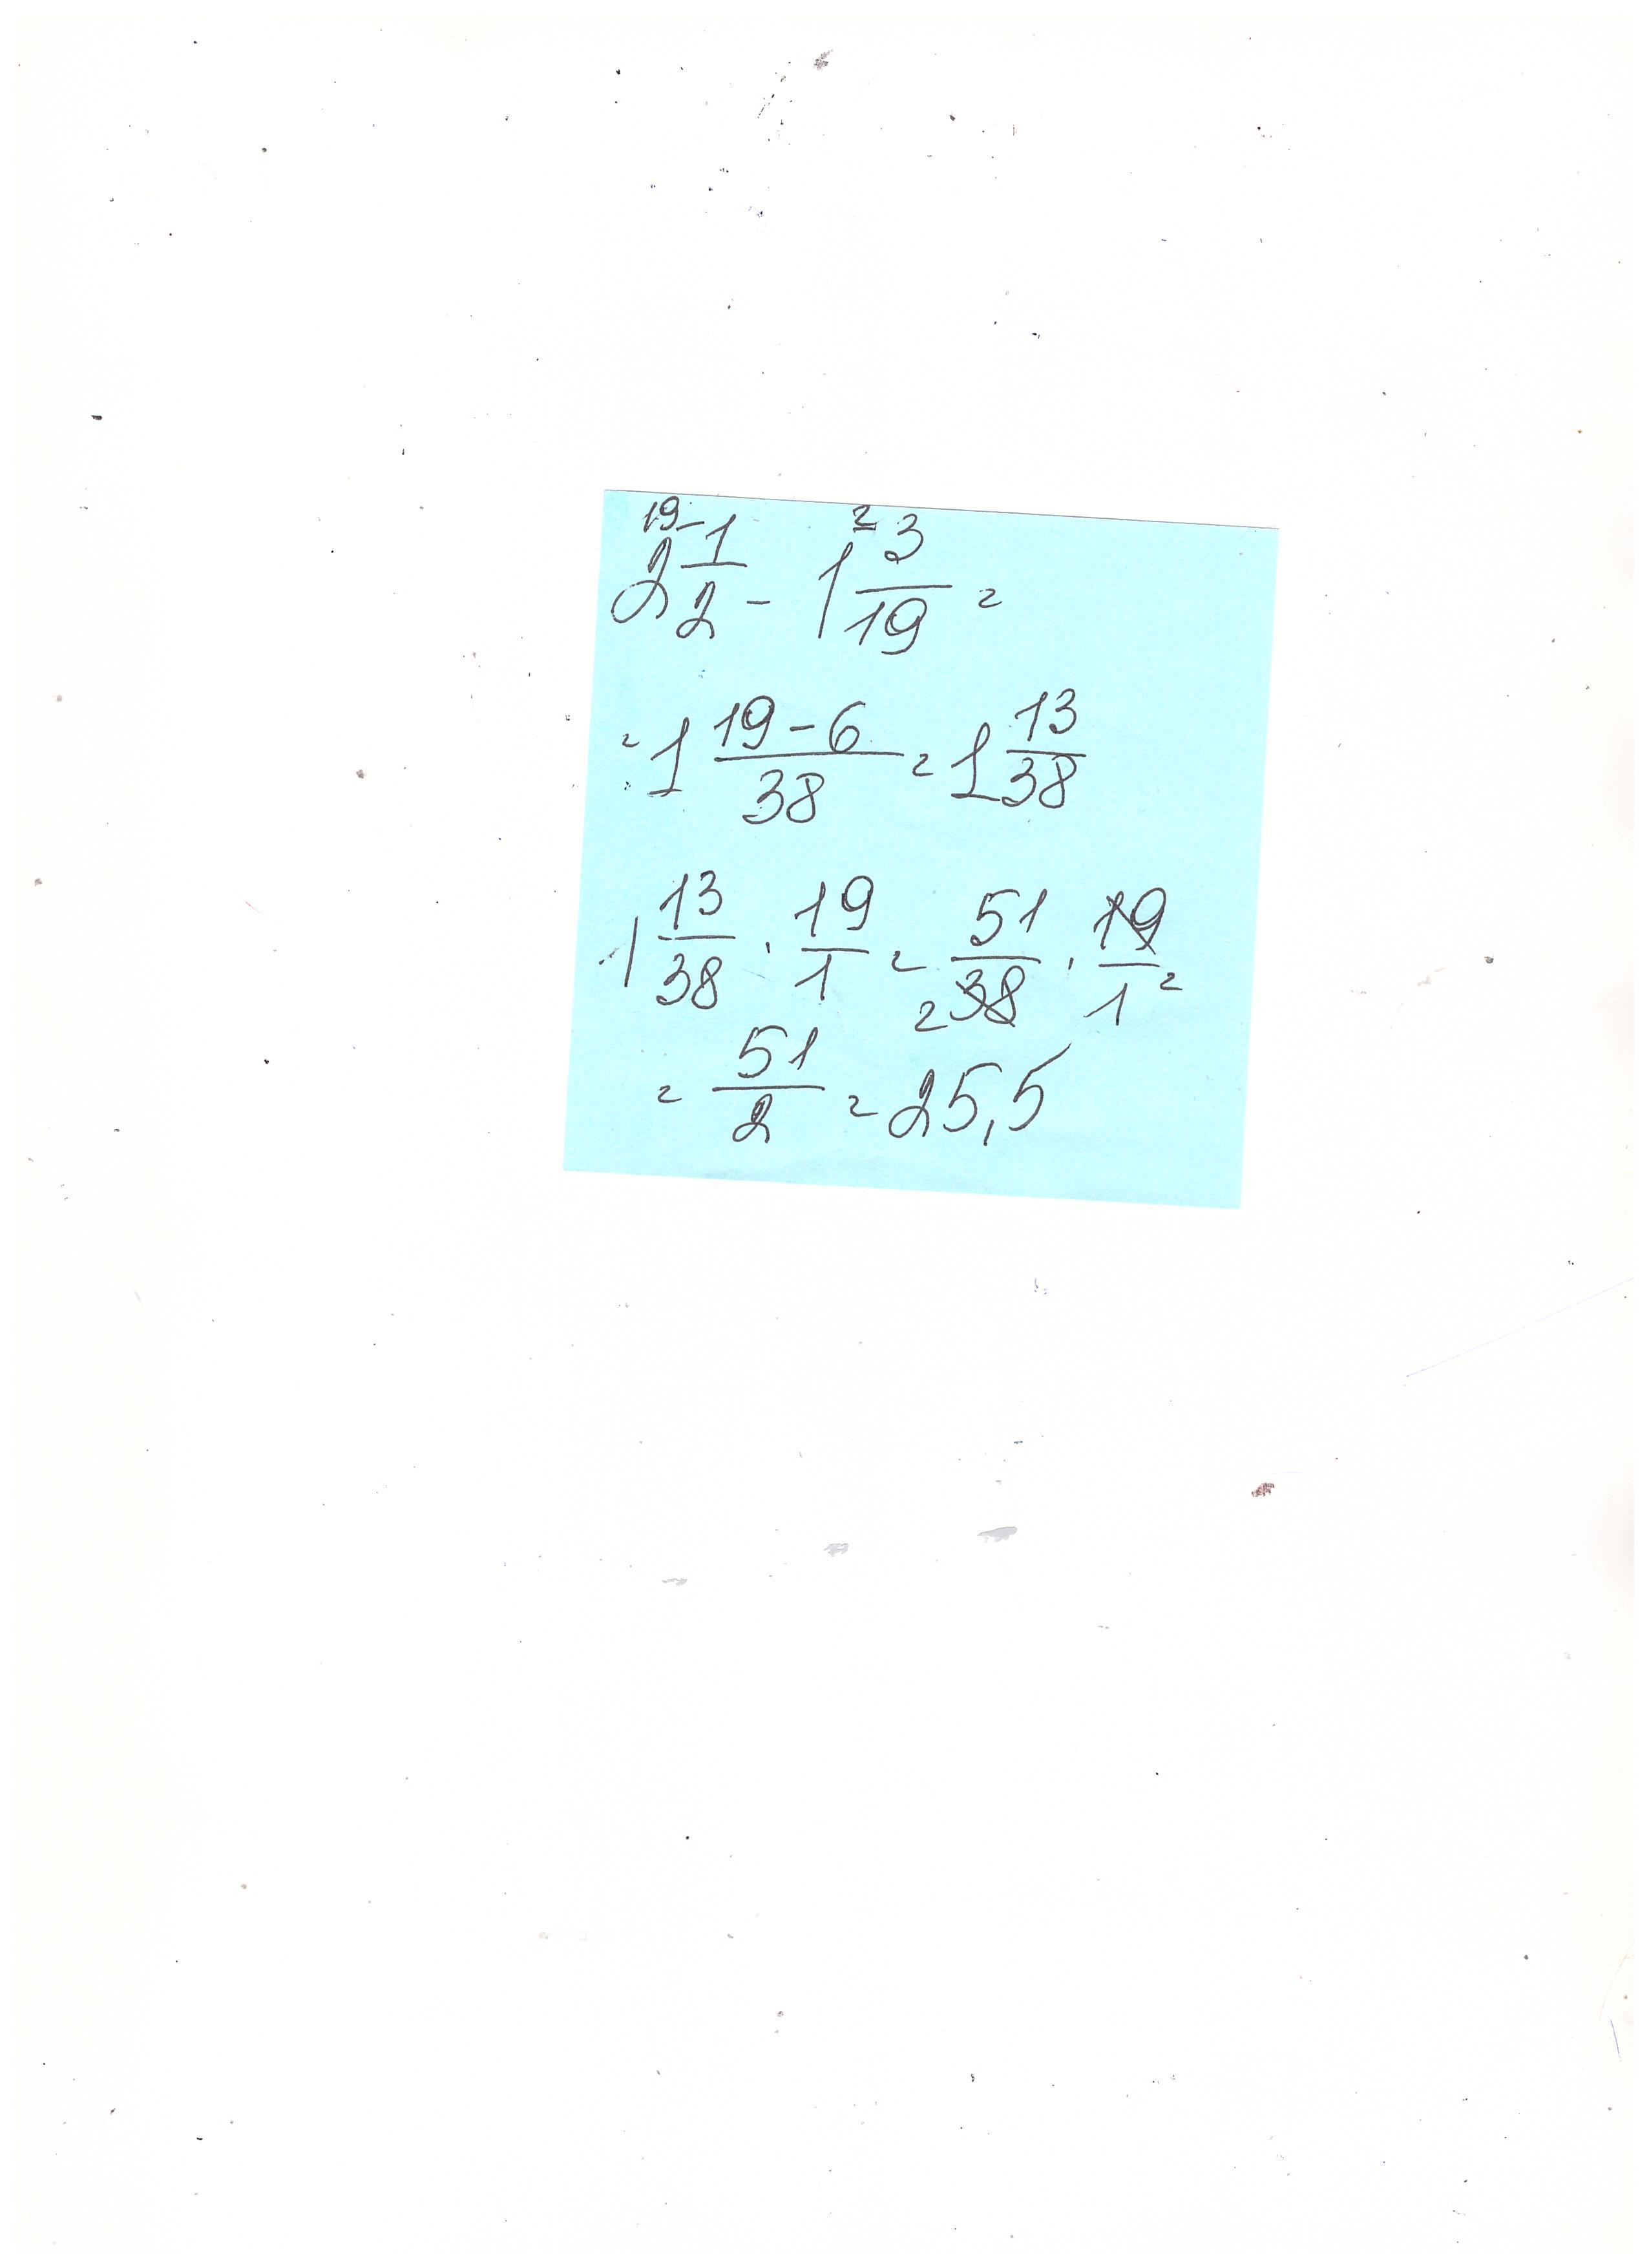 19 2
2 1/2 - 1 3/19 =
= 1 (19-6)/38 = 1 13/38
1 13/38 · 19/1 = 51/38 · 19/1 =
2
= 51/2 = 25,5